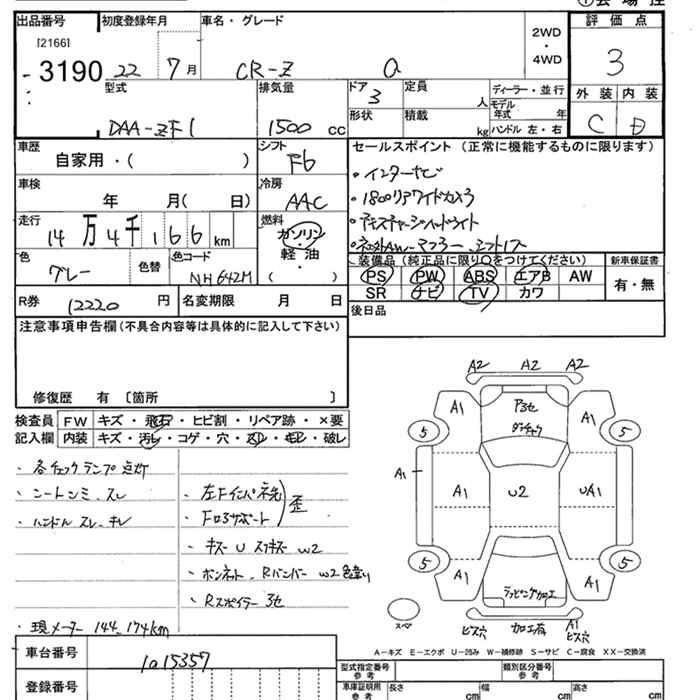 出品番号
[2166]
3190
初度登録年月
22 7月
車名・グレード
CR-Z α
2WD
・
4WD
評価点
3
外装 内装
C B
型式
DAA-ZF1
排気量
1500 cc
ドア
3
定員
人
形状
積載
kg
ディーラー・並行
モデル
年式 年
ハンドル 左・右
車歴
自家用・( )
シフト
F6
車検
年 月( 日)
冷房
AAC
走行
14万4千166 km
燃料
ガソリン
・
軽油
( )
色
グレー
色替
色コード
NH642M
R券 12220 円
名変期限 月 日
セールスポイント (正常に機能するものに限ります)
・インターナビ
・社外AW マフラー シフトノブ
装備品 (純正品に限り○をつけてください)
PS PW ABS エアB AW
SR ナビ TV カワ
新車保証書
有・無
後日品
注意事項申告欄(不具合内容等は具体的に記入して下さい)
修復歴 有 〔箇所 〕
検査員
記入欄
FW キズ・飛石・ヒビ割・リペア跡・×要
内装 キズ・汚レ・コゲ・穴・スレ・キレ・破レ
・各チェックランプ点灯
・シートシミ、スレ
・ハンドル スレ、キレ
・左Fインパネ先
・Fロアサポート
歪
・キズ U スリキズ W2
・ボンネット、Rバンパー W2 色違い
・Rスポイラー 3セ
・現メーター 144,174km
車台番号
1015357
登録番号
A2 A2 A2
A1 P3セ A1
5 5
A1
A1 U2 UA1
5 5
A1 ラッピング加工 A1
スペア
ビス穴 加工有 A1
ビス穴
A-キズ E-エクボ U-凹み W-補修跡 S-サビ C-腐食 XX-交換済
型式指定番号
類別区分番号
車庫証明用
参考
長さ cm 幅 cm 高さ cm